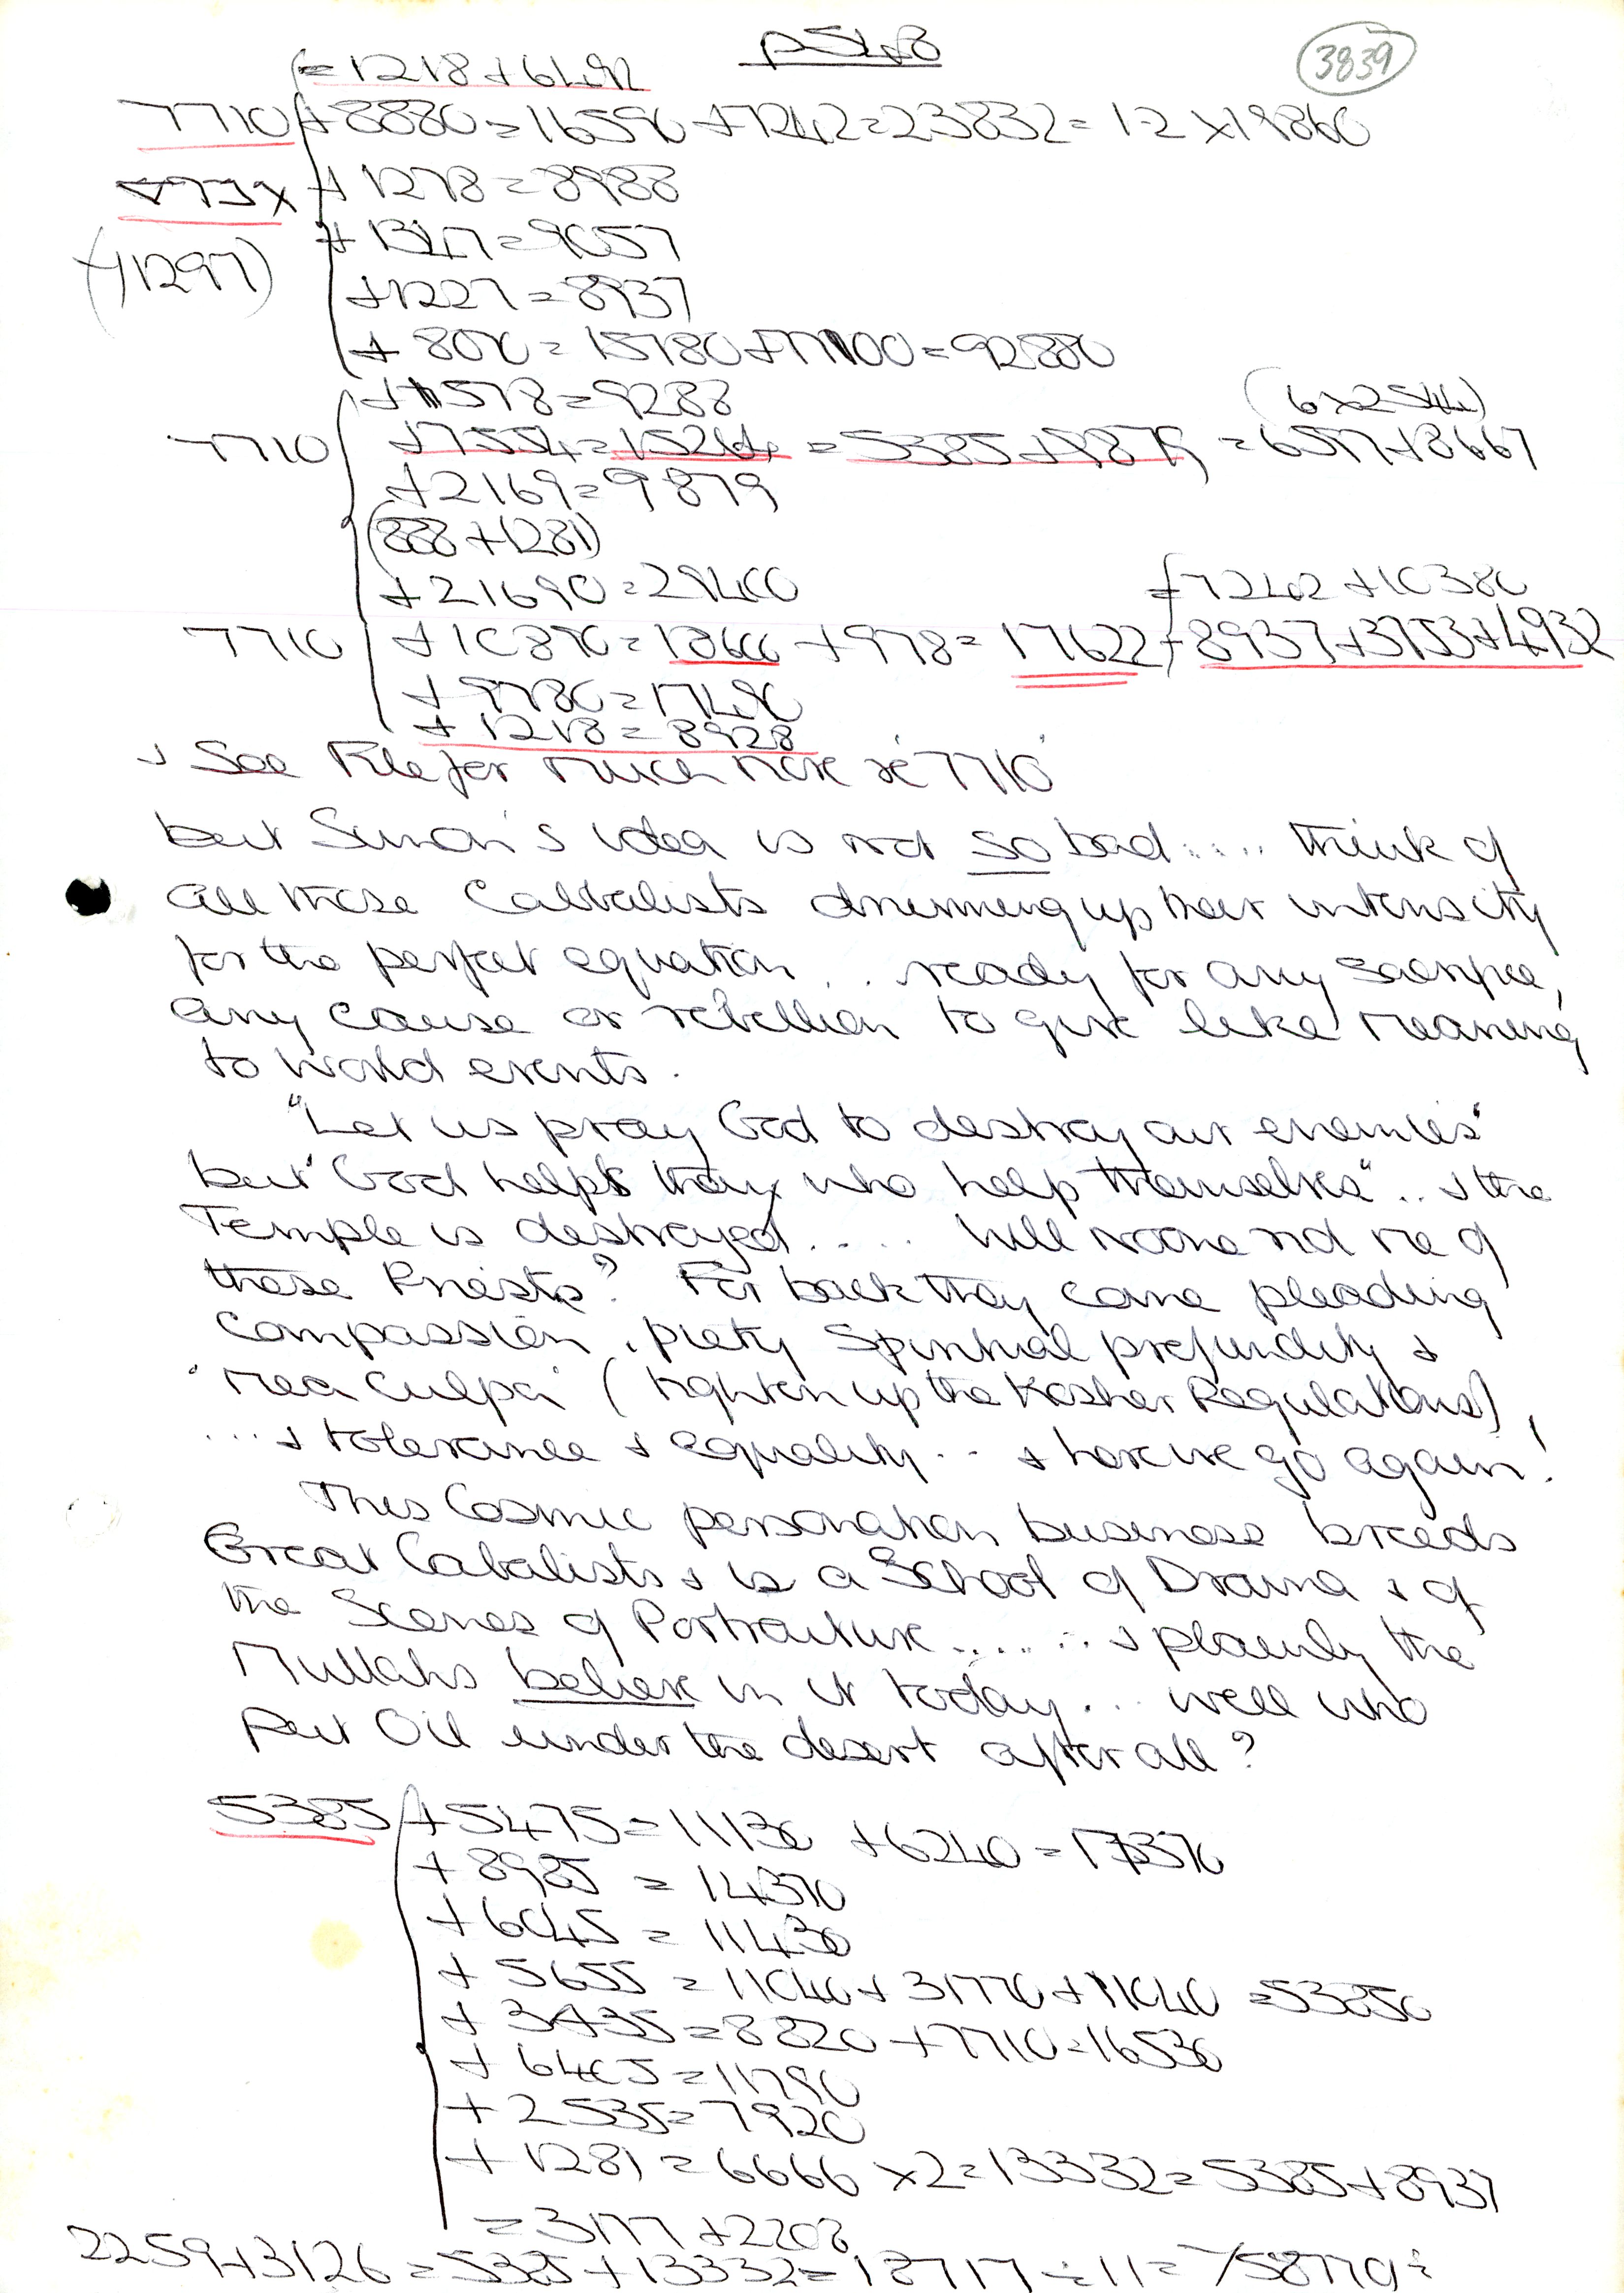 p548
3839
= 1218 + 6492
7710 + 8880 = 16590 + 7242 = 23832 = 1.2 × 19860
+ 1278 = 8988
+ 1347 = 9057
(-11297)
+ 1227 = 8937
+ 8070 = 15780 + 77100 = 92880
+ 1578 = 9288
(6 × 2544)
7710 + 7554 = 15264 = 5385 + 9879 = 6597 + 8667
+ 2169 = 9879
(888 + 1281)
+ 21690 = 29400
= 7242 + 10380
7710 + 10890 = 18600 + 978 = 17622 = 8937 + 3753 + 4932
+ 9780 = 17490
+ 1218 = 8928
+ See File for much more re '7710'
but Simon's idea is not so bad .... think of
all those Cabbalists drumming up their intensity
for the perfect equation .. ready for any sacrifice,
any cause or rebellion to give like meaning
to world events.
"Let us pray God to destroy our enemies"
but "God helps they who help themselves" .. + the
Temple is destroyed .... Will noone rid me of
these Priests? For back they come pleading
compassion, piety Spiritual profundity +
'mea culpa' (tighten up the Kosher Regulations),
... + tolerance + equality .. + here we go again!
This Cosmic personation business breeds
Great Cabalists + is a School of Drama + of
the Scenes of Portraiture ...... + plainly the
Mullahs believe in it today... well who
put Oil under the desert after all?
5385 + 5475 = 11130 + 6240 = 17370
+ 8985 = 14370
+ 6045 = 11430
+ 5655 = 11040 + 31770 + 11040 = 53850
+ 3435 = 8820 + 7710 = 16530
+ 6405 = 11790
+ 2535 = 7920
+ 1281 = 6666 × 2 = 13332 = 5385 + 8937
= 3177 + 2208
2259 + 3126 = 5385 + 13332 = 18717 ÷ 11 = 758770 ÷